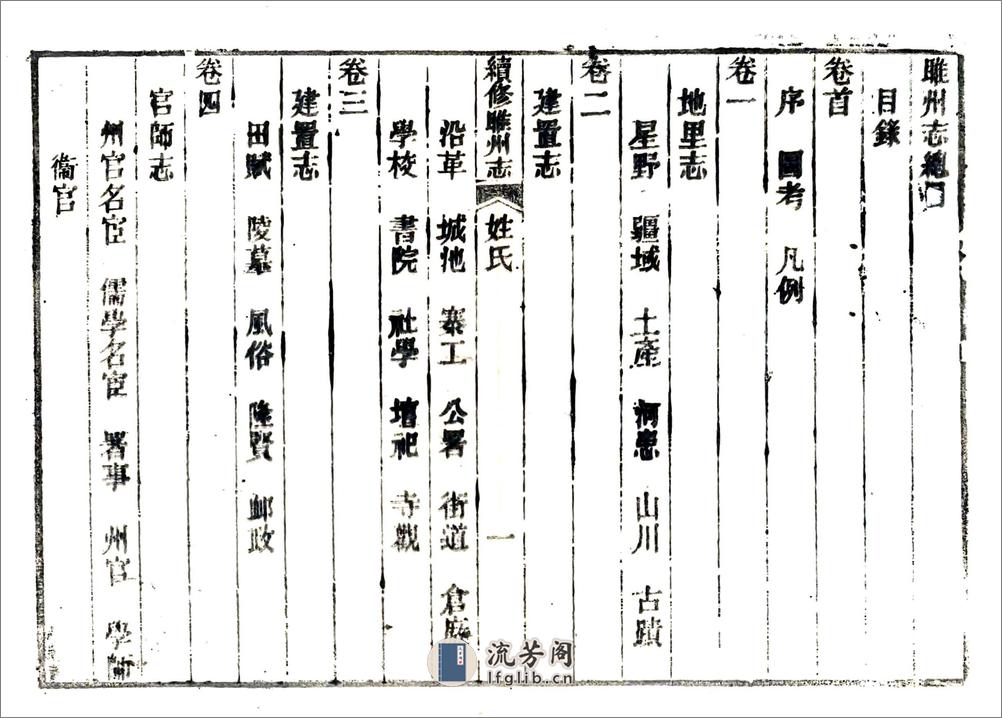 睢州志總目
目錄
卷首
序 圖考 凡例
卷一
地里志
星野 疆域 土產 河患 山川 古蹟
卷二
建置志
續修睢州志 姓氏 一
沿革 城池 寨工 公署 街道 倉廒
學校 書院 社學 壇祀 寺觀
卷三
建置志
田賦 陵墓 風俗 隆賢 郵政
卷四
官師志
州官名宦 儒學名宦 署事 州官 學師
衞官
流芳阁
lfglib.cn